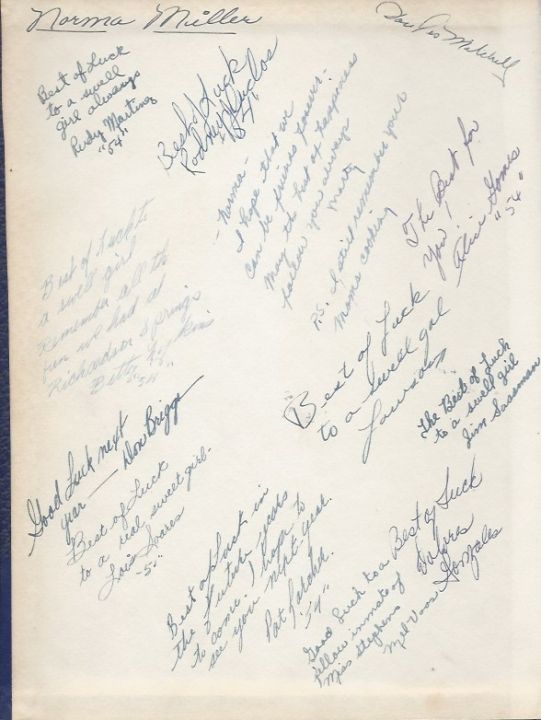 Norma Miller
Mitchell
Best of Luck
to a swell
girl always
Rudy Martinez
"54"
Best of Luck
Rodney
54
- Norma -
I hope that we
can be friends forever -
May the best of happiness
follow you always
Marty
P.S. I still remember your
moms cooking
The Best for
you
Alice Gomes
"54"
Best of Luck to
a swell girl
Remember all the
fun we had at
Richardson Springs
Betty
Best of Luck
to a swell gal
The Best of Luck
to a swell girl
Jim Sassman
Good Luck next
year — Don Briggs
Best of Luck
to a real sweet girl -
Lois Soares
Best of Luck in
the future years
to come. I hope to
see you next year.
Pat
Best of Luck
Dolores
Gonzales
Good Luck to a
fellow inmate of
Miss Stephens
Mel Voss